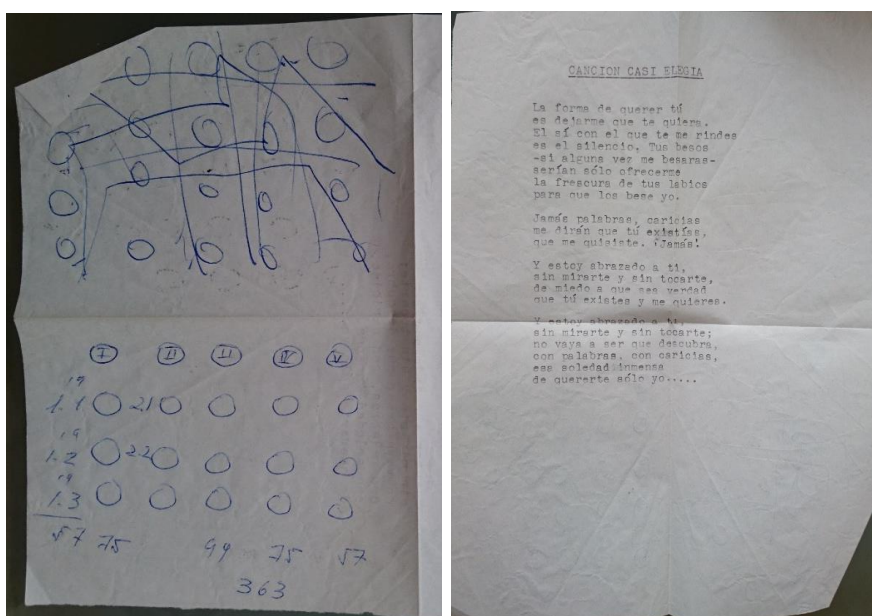 I II II IV V
19
1.1 21
19
1.2 22
19
1.3
57 75 99 75 57
363
CANCION CASI ELEGIA
La forma de querer tú
es dejarme que te quiera.
El sí con el que te me rindes
es el silencio. Tus besos
-si alguna vez me besaras-
serían sólo ofrecerme
la frescura de tus labios
para que los bese yo.
Jamás palabras, caricias
me dirán que tú existías,
que me quisiste. ¡Jamás!
Y estoy abrazado a ti,
sin mirarte y sin tocarte,
de miedo a que sea verdad
que tú existes y me quieres.
Y estoy abrazado a ti,
sin mirarte y sin tocarte;
no vaya a ser que descubra,
con palabras, con caricias,
esa soledad inmensa
de quererte sólo yo.....